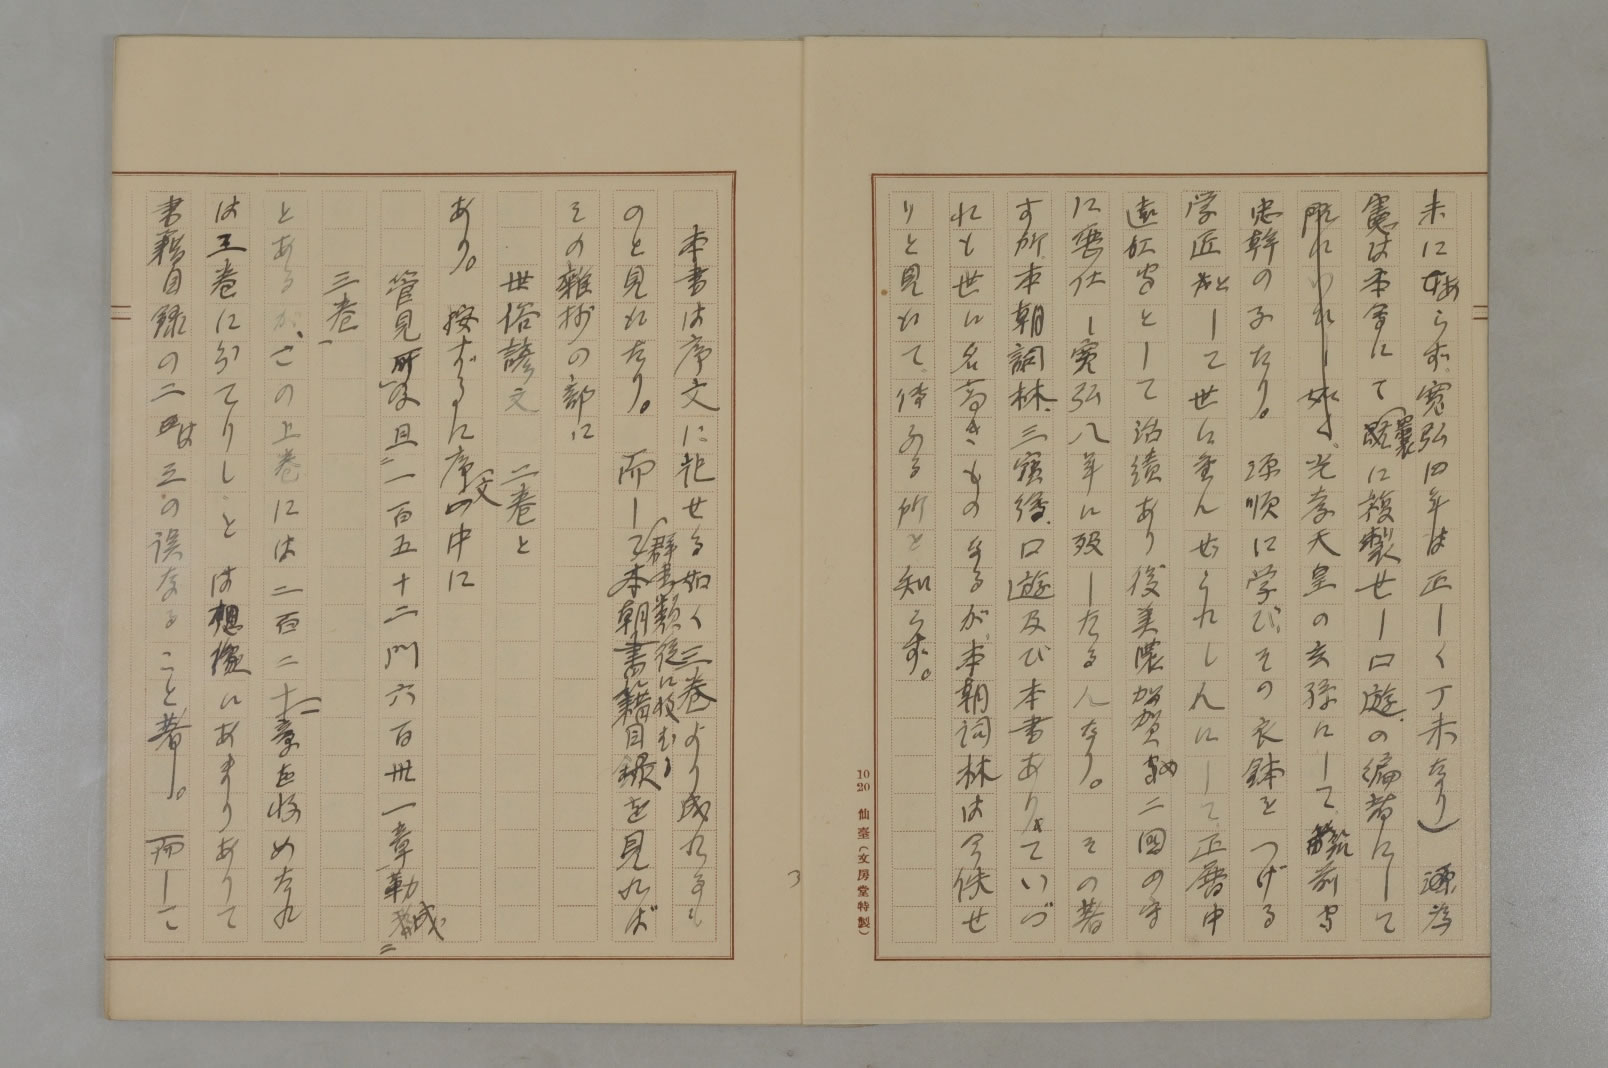 未にあらず、寛弘四年は正しく丁未なり)　源為
憲は本会にて曩に複製せし口遊の編者にして
光孝天皇の玄孫にして、筑前守
忠幹の子なり。源順に学び、その衣鉢をつげる
学匠として世に重んせられし人にして、正暦中
遠江守として治績あり後美濃加賀二国の守
に歴仕し寛弘八年に歿したる人なり。その著
す所、本朝詞林、三宝絵、口遊及び本書ありていづ
れも世に名高きものなるが、本朝詞林は今佚せ
りと見れて、伝る所を知らず。
本書は序文に記せる如く三巻より成れるも
のと見れたり。而して群書類従に収むる本朝書籍目録を見れば
その雑抄の部に
世俗諺文　二巻と
あり。按ずるに序文の中に
管見所及且一百五十二門六百卅一章勒成
三巻
とあるが、この上巻には二百二十一章を収めたれ
は三巻に分てりしことは想像にあまりありて
書籍目録の二は三の誤なること著し。而して
10
20
仙臺(文房堂特製)
3